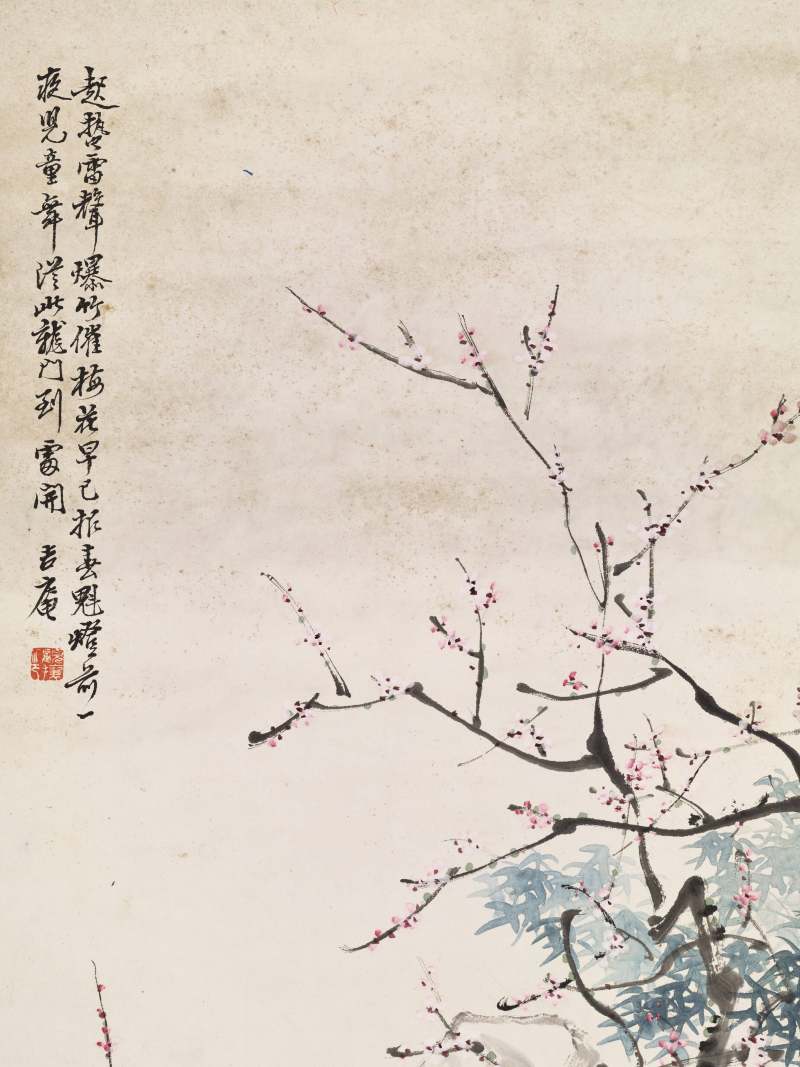 起蟄雷聲爆竹催梅花早已報春魁燈前一
夜兒童舞從此龍門到處開 吉庵